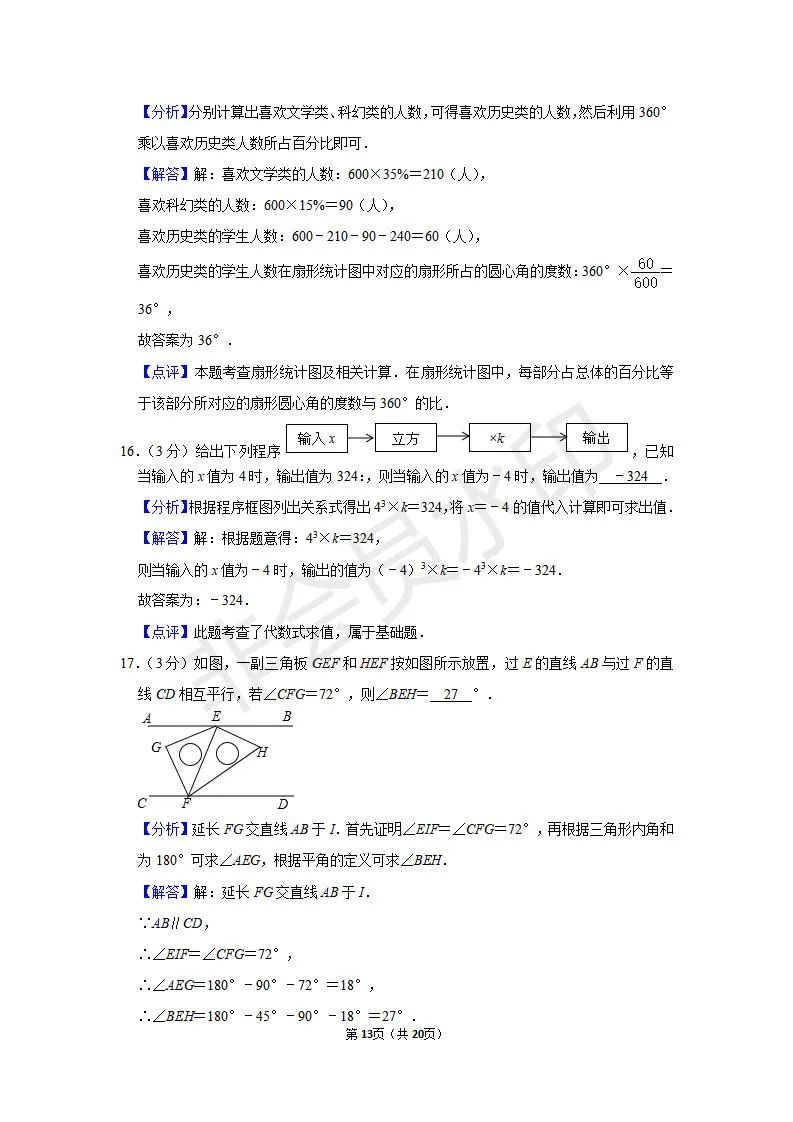 【分析】分别计算出喜欢文学类、科幻类的人数,可得喜欢历史类的人数,然后利用 360°
乘以喜欢历史类人数所占百分比即可.
【解答】解:喜欢文学类的人数:600×35%=210(人),
喜欢科幻类的人数:600×15%=90(人),
喜欢历史类的学生人数:600﹣210﹣90﹣240=60(人),
喜欢历史类的学生人数在扇形统计图中对应的扇形所占的圆心角的度数:360°×60/600=
36°,
故答案为 36°.
【点评】本题考查扇形统计图及相关计算.在扇形统计图中,每部分占总体的百分比等
于该部分所对应的扇形圆心角的度数与 360°的比.
16.(3 分)给出下列程序 输入 x 立方 ×k 输出 ,已知
当输入的 x 值为 4 时,输出值为 324:,则当输入的 x 值为﹣4 时,输出值为 ﹣324 .
【分析】根据程序框图列出关系式得出 4³×k=324,将 x=﹣4 的值代入计算即可求出值.
【解答】解:根据题意得:4³×k=324,
则当输入的 x 值为﹣4 时,输出的值为(﹣4)³×k=﹣4³×k=﹣324.
故答案为:﹣324.
【点评】此题考查了代数式求值,属于基础题.
17.(3 分)如图,一副三角板 GEF 和 HEF 按如图所示放置,过 E 的直线 AB 与过 F 的直
线 CD 相互平行,若∠CFG=72°,则∠BEH= 27 °.
A E B
G H
C F D
【分析】延长 FG 交直线 AB 于 I.首先证明∠EIF=∠CFG=72°,再根据三角形内角和
为 180°可求∠AEG,根据平角的定义可求∠BEH.
【解答】解:延长 FG 交直线 AB 于 I.
∵AB∥CD,
∴∠EIF=∠CFG=72°,
∴∠AEG=180°﹣90°﹣72°=18°,
∴∠BEH=180°﹣45°﹣90°﹣18°=27°.
第 13页(共 20页)
非会员水印